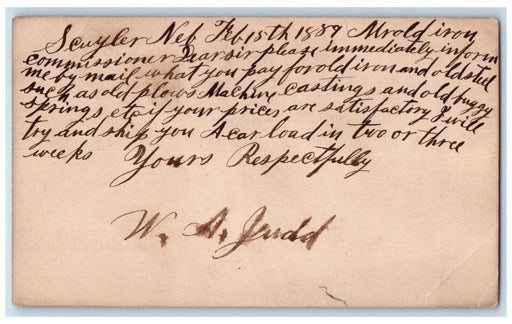 Scuyler Neb Feb 15th 1889 Mr old iron
commissioner Dear sir please immediately inform
me by mail what you pay for old iron and old steel
such as old plows Machine castings and old buggy
springs etc if your prices are satisfactory I will
try and ship you A car load in two or three
weeks Yours Respectfully
W. A. Judd